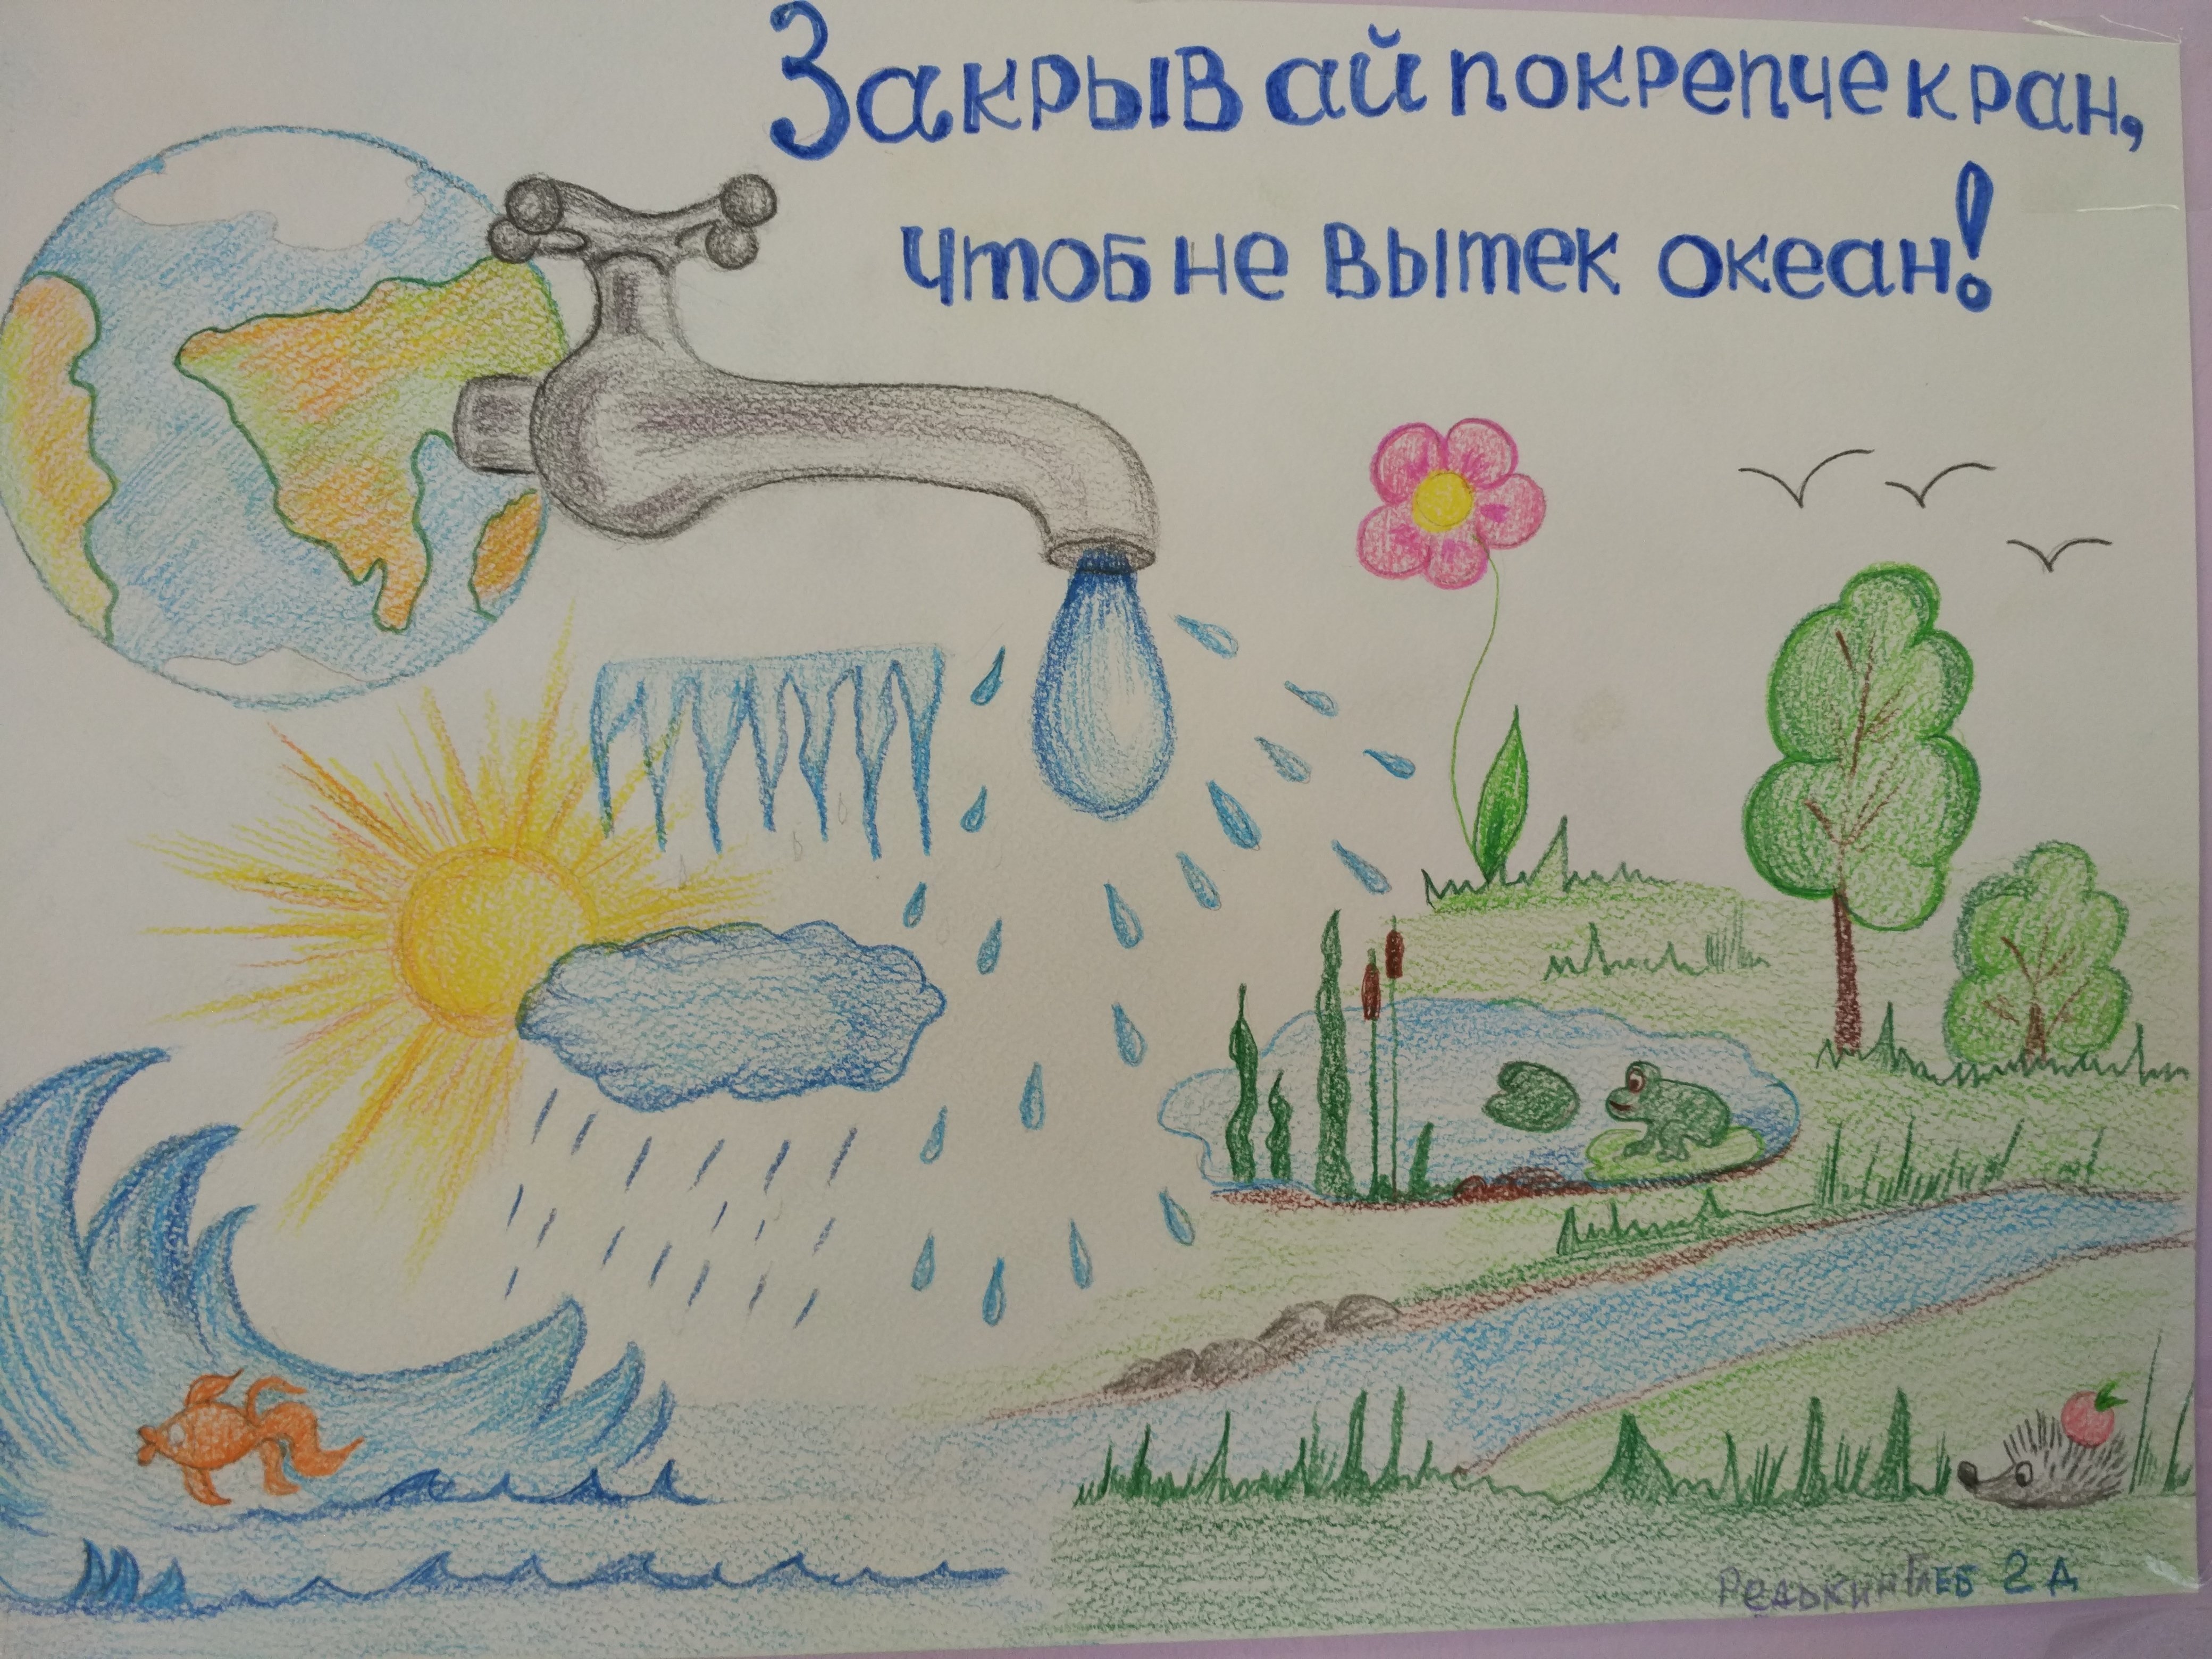 Закрывай покрепче кран,
чтоб не вытек океан!
Редькин Глеб 2 Д